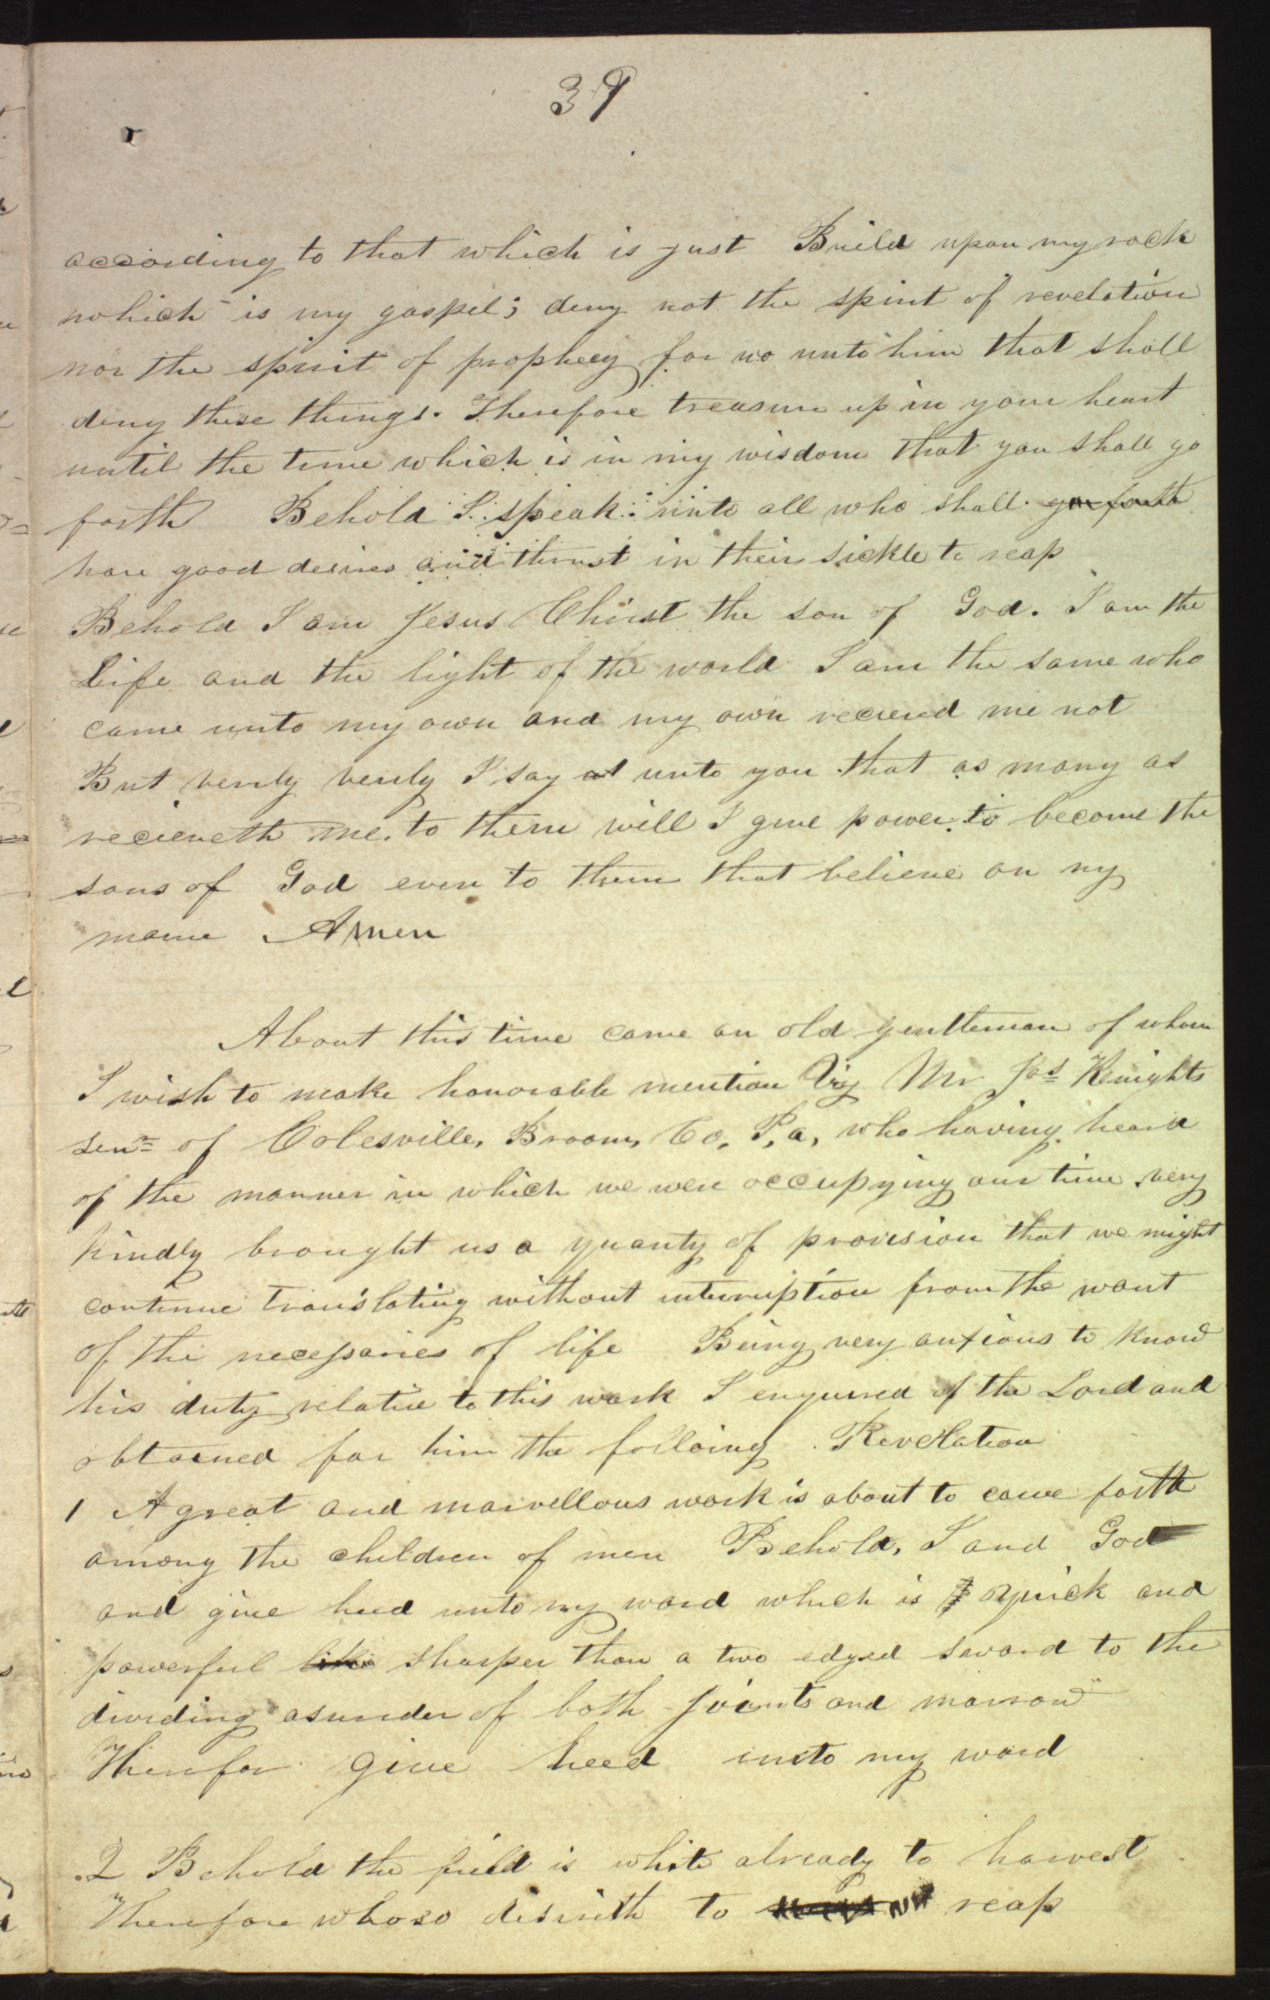 39
according to that which is just Build upon my rock
which is my gospel; deny not the spirit of revelation
nor the spirit of prophecy for wo unto him that shall
deny these things. Therefore treasure up in your heart
until the time which is in my wisdom that you shall go
forth Behold I speak unto all who shall go forth
have good desires and thrust in their sickle to reap
Behold I am Jesus Christ the son of God. I am the
Life and the light of the world I am the same who
came unto my own and my own recieved me not
But verily verily I say unto you that as many as
recieveth me. to them will I give power to become the
sons of God even to them that believe on my
name Amen
About this time came an old gentleman of whom
I wish to make honorable mention Viz Mr Jos Knights
senr of Colesville, Broom, Co, P,a, who having heard
of the manner in which we were occupying our time very
kindly brought us a quanty of provision that we might
continue translating without interruption from the want
of the necessaries of life Being very anxious to know
his duty relative to this work I enquired of the Lord and
obtained for him the folloing Revelation
1 A great and marvellous work is about to come forth
among the children of men Behold, I and God
and give heed unto my word which is quick and
powerful like sharper than a two edged sword to the
dividing asunder of both joints and marrow
Therefor give heed unto my word
2 Behold the field is white already to harvest
Therefore whoso disireth to reap